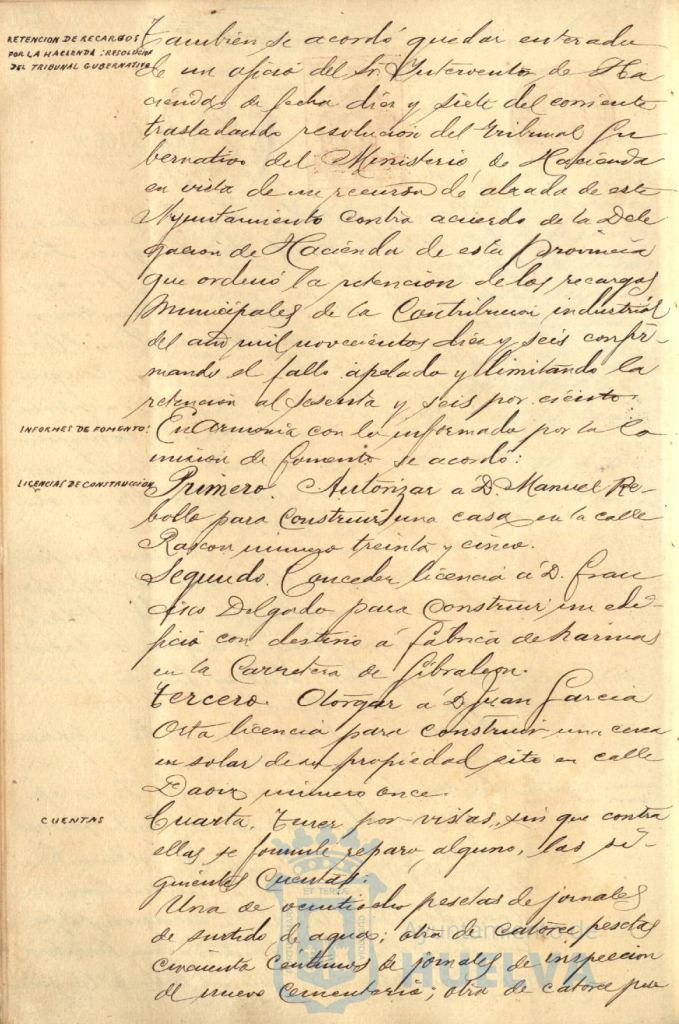 RETENCION DE RECARGOS
POR LA HACIENDA: RESOLUCION
DEL TRIBUNAL GUBERNATIVO
Tambien se acordó quedar enterado
de un oficio del Sr. Interventor de Ha
cienda de fecha diez y siete del corriente
trasladando resolución del Tribunal Gu
bernativo del Ministerio de Hacienda
en vista de un recurso de alzada de este
Ayuntamiento contra acuerdo de la Dele
gación de Hacienda de esta Provincia
que ordenó la retención de los recargos
Municipales de la Contribucion industrial
del año mil novecientos diez y seis confir-
mando el fallo apelado y limitando la
retención al sesenta y seis por ciento.
INFORMES DE FOMENTO:
En Armonía con lo informado por la Co
misión de fomento se acordó:
LICENCIAS DE CONSTRUCCION
Primero. Autorizar á D. Manuel Re-
bollo para construir una casa en la calle
Rascon número treinta y cinco.
Segundo. Conceder licencia á D. Fran
cisco Delgado para construir un edi-
ficio con destino á fábrica de harinas
en la Carretera de Gibraleon.
Tercero. Otorgar á D. Juan Garcia
Orta licencia para construir una cerca
en solar de su propiedad sito en calle
Daoiz número once.
CUENTAS
Cuarta. Tener por vistas, sin que contra
ellas se formule reparo alguno, las si-
guientes Cuentas.
Una de veintiocho pesetas de jornales
de surtido de aguas; otra de catorce pesetas
cincuenta centimos de jornales de inspeccion
del nuevo cementerio; otra de catorce pese
ET TERRAE
Ayuntamiento de
HUELVA